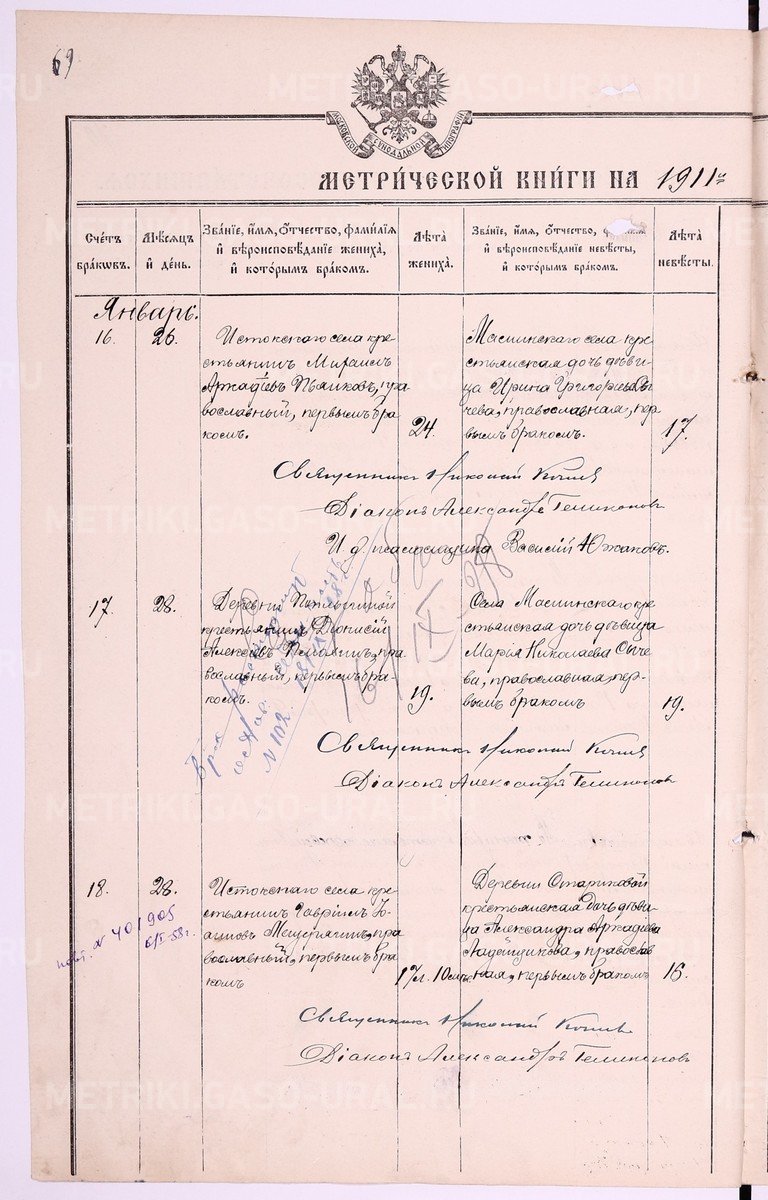 69
МОСКОВСКОЙ СѴНОДАЛЬНОЙ ТИПОГРАФІИ
МЕТРИ́ЧЕСКОЙ КНИ́ГИ НА 1911й
Сче́тъ бра́кωвъ.
Мѣ́сяцъ и҆ де́нь.
Зва́нїе, и҆́мѧ, ѻ҆́тчество, фами́лїѧ
и҆ вѣроисповѣ́данїе жениха̀,
и҆ кото́рымъ бра́комъ.
Лѣ́та жениха̀.
Зва́нїе, и҆́мѧ, ѻ҆́тчество,
и҆ вѣроисповѣ́данїе невѣ́сты,
и҆ кото́рымъ бра́комъ.
Лѣ́та невѣ́сты.
Январь.
16. 26.
Истокскаго села кре
стьянинъ
Аркадіевъ пра
вославный, первымъ бра
комъ.
24.
Маминскаго села кре
стьянская дочь дѣви
ца Ирина Григорьева Сы
чева, православная, пер
вымъ бракомъ.
17.
Священникъ Николай
Діаконъ Александръ
И. д. псаломщика Василій Южаковъ.
17. 28.
Деревни
крестьянинъ Діонисій
Алексѣевъ пра
вославный, первымъ бра
комъ.
19.
Села Маминскаго кре
стьянская дочь дѣвица
Марья Николаева Сыче
ва, православная, пер
вымъ бракомъ
19.
N 102
Священникъ Николай
Діаконъ Александръ
18. 28.
Истокскаго села кре
стьянинъ Гавріилъ
Мещерягинъ, пра
вославный, первымъ бра
комъ
17 л. 10 мѣс.
Деревни Стариковой
крестьянская дочь дѣви
ца Александра Аркадіева
православ
ная, первымъ бракомъ
16.
N 401905
Священникъ Николай
Діаконъ Александръ
METRIKI.GASO-URAL.RU